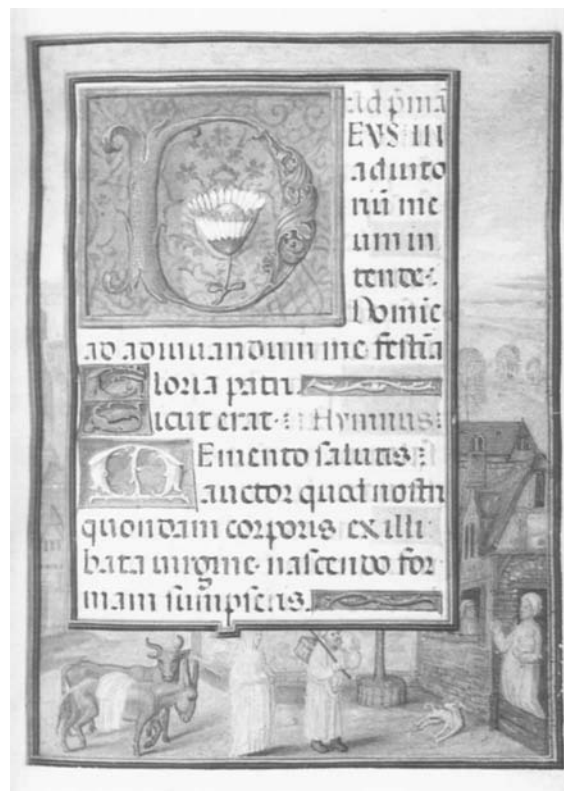 ad p̄mā
DEVS in
adiuto
riū me
um in
tende:
Domīe
ad adiuuandum me festīa
Gloria patri.
Sicut erat: Hymnus:
Memento salutis:
auctor quod nostri
quondam corporis ex illi
bata uirgine nascendo for
mam sumpseris.